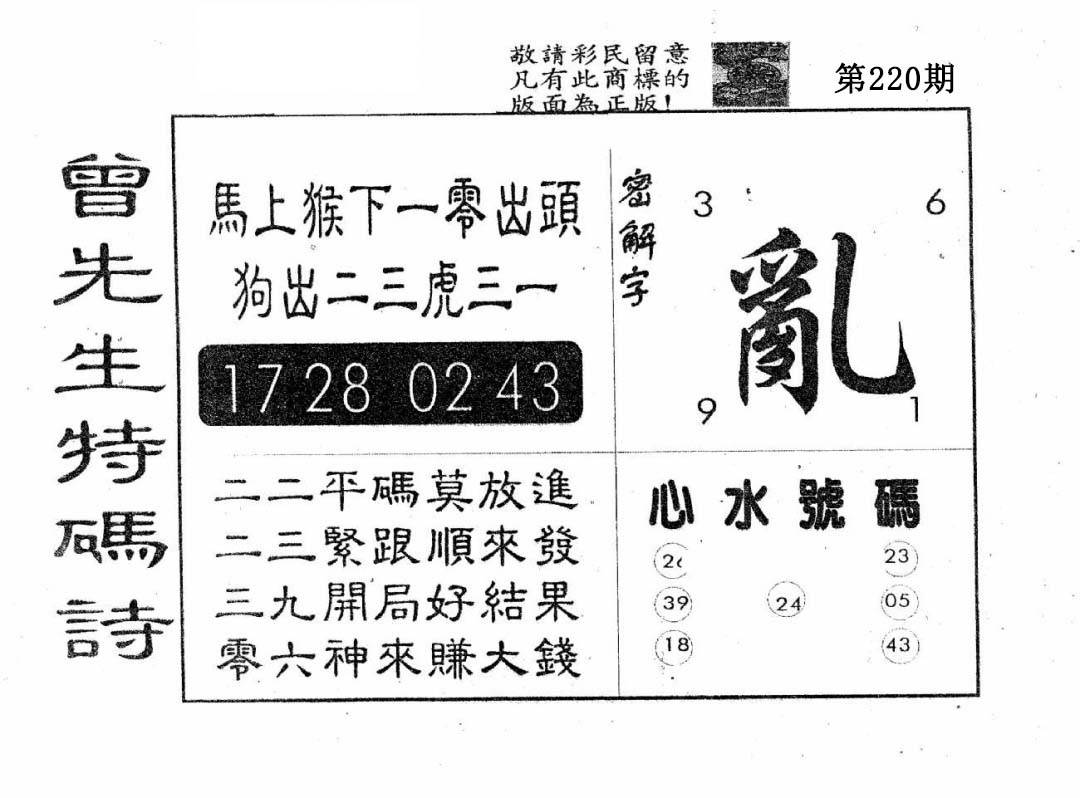 敬請彩民留意
凡有此商標的
版面為正版!
第220期
曾先生特碼詩
馬上猴下一零出頭
狗出二三虎三一
17 28 02 43
二二平碼莫放進
二三緊跟順來發
三九開局好結果
零六神來賺大錢
密解字
3 6
亂
9 1
心水號碼
26 23
39 24 05
18 43